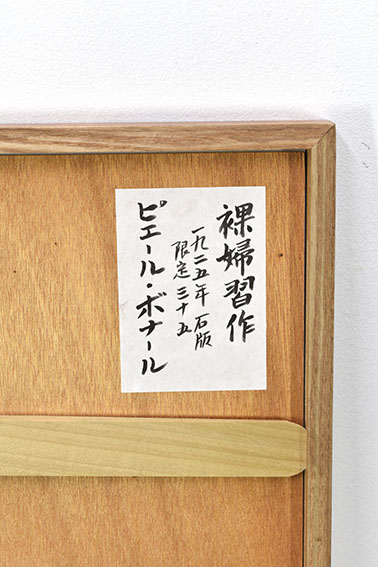 裸婦習作
一九二五年 石版
限定 三十五
ピエール・ボナール